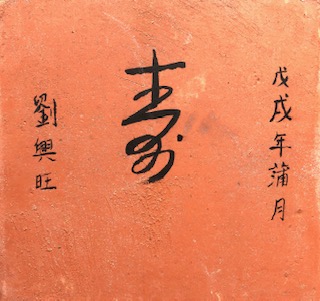 戊戌年蒲月
寿
劉興旺